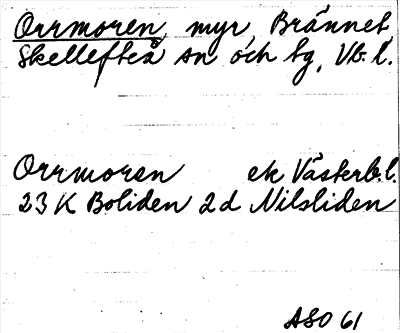 Orrmoren, myr, Brännet,
Skellefteå sn och tg, Vb. l.
Orrmoren ek Västerb. l.
23 K Boliden 2d Nilsliden
ASO 61